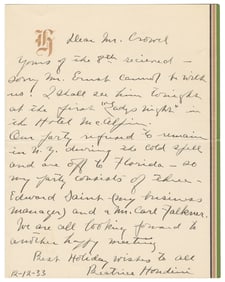 H
Dear Mr. Crowel
Yours of the 8th received –
Sorry Mr. Ernst cannot be with
us! I shall see him tonight
at the first "Lady's night" in
the Hotel McAlpin.
Our party refused to remain
in N.Y. during the cold spell
and are off to Florida – so
my party consists of three –
Edward Saint – (my business
manager) and a Mr. Carl Falkner.
We are all looking forward to
another happy meeting
Best Holiday wishes to all
12-12-33 Beatrice Houdini